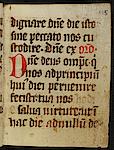 dignare dn̄e die isto
sine peccato nos cu
stodire. Dn̄e ex oro
Dn̄e deus om̄p̄c q̄
nos adprincipiū
hui diei peruenire
fecisti tua nos hodie
salua uirtute ut i
hac die ad nullū de